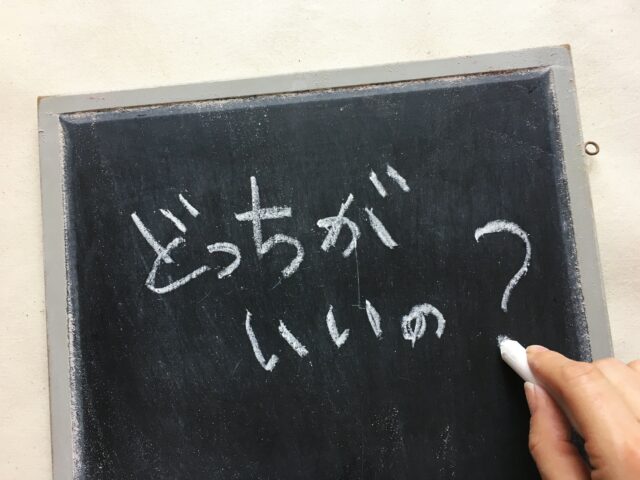 どっちが
いいの?